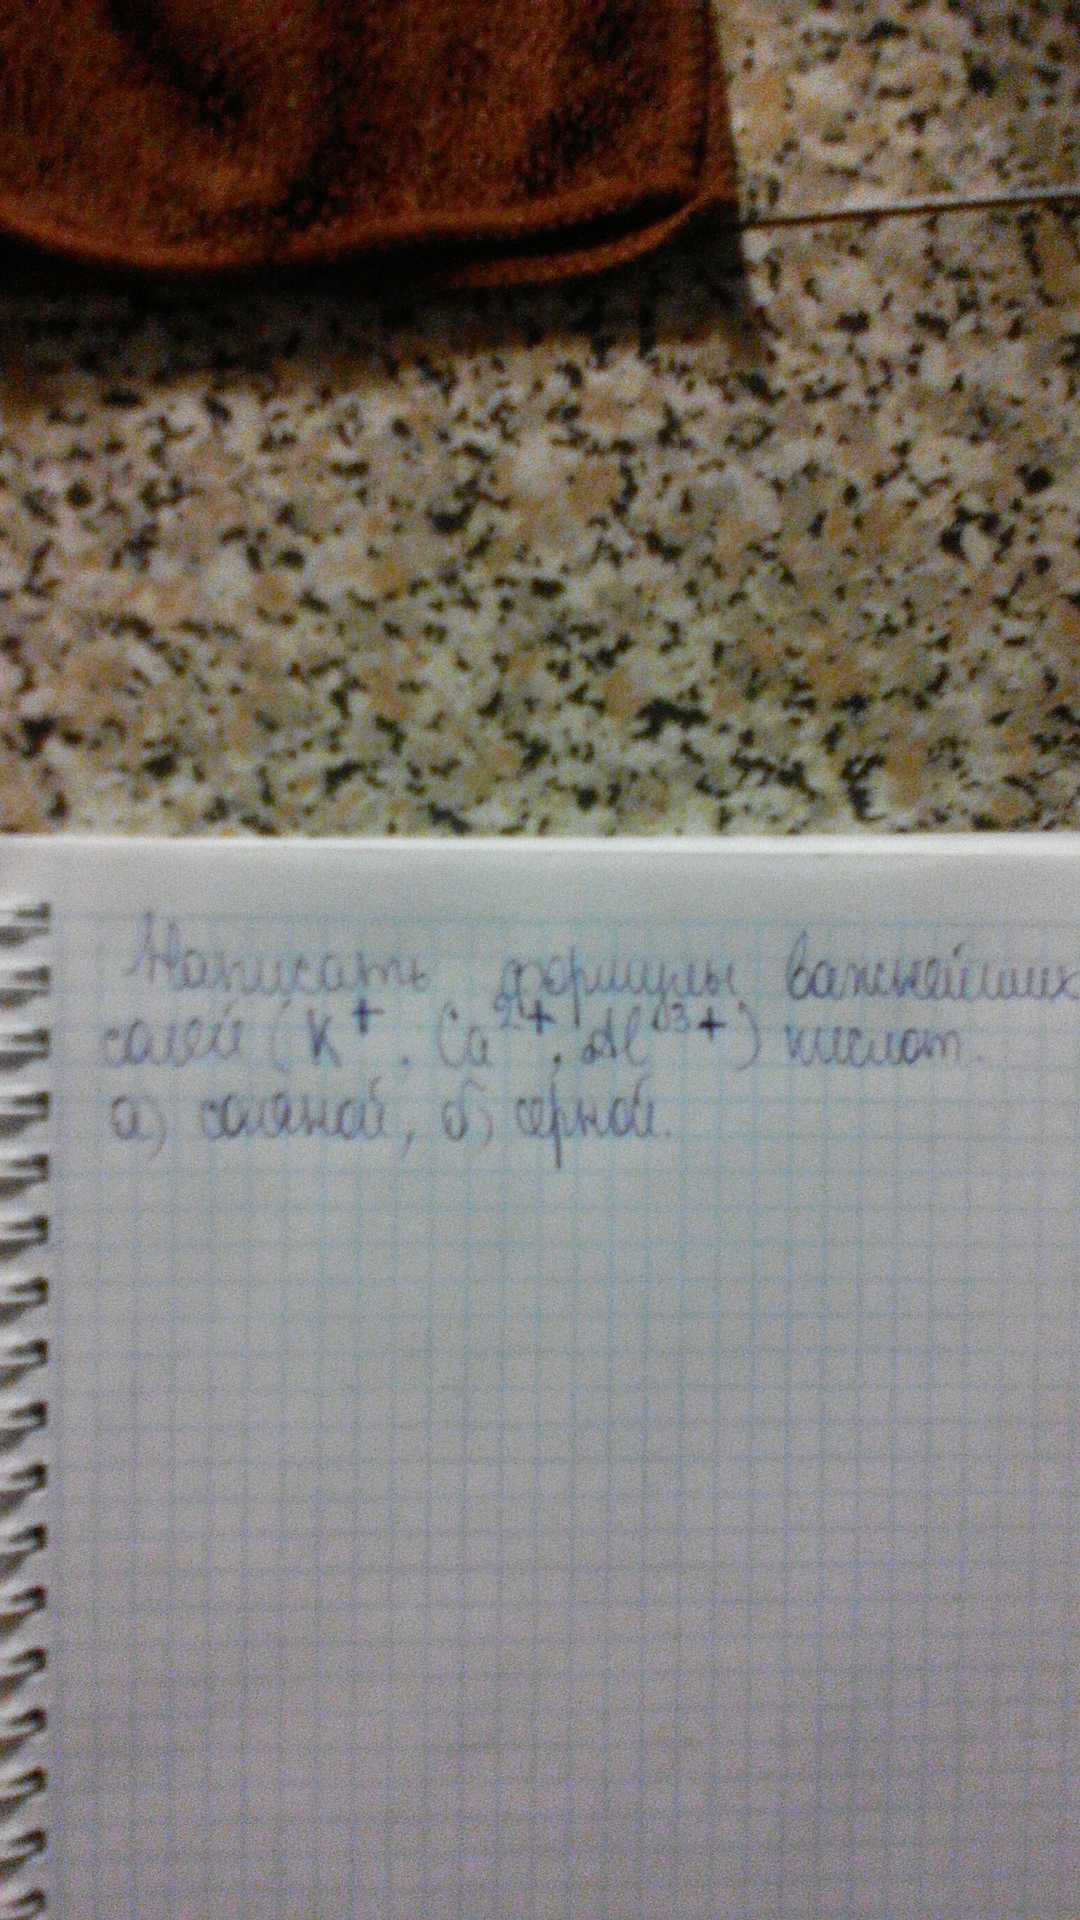 Написать формулы важнейших
солей (K⁺, Ca²⁺, Al³⁺) кислот.
а) соляной, б) серной.